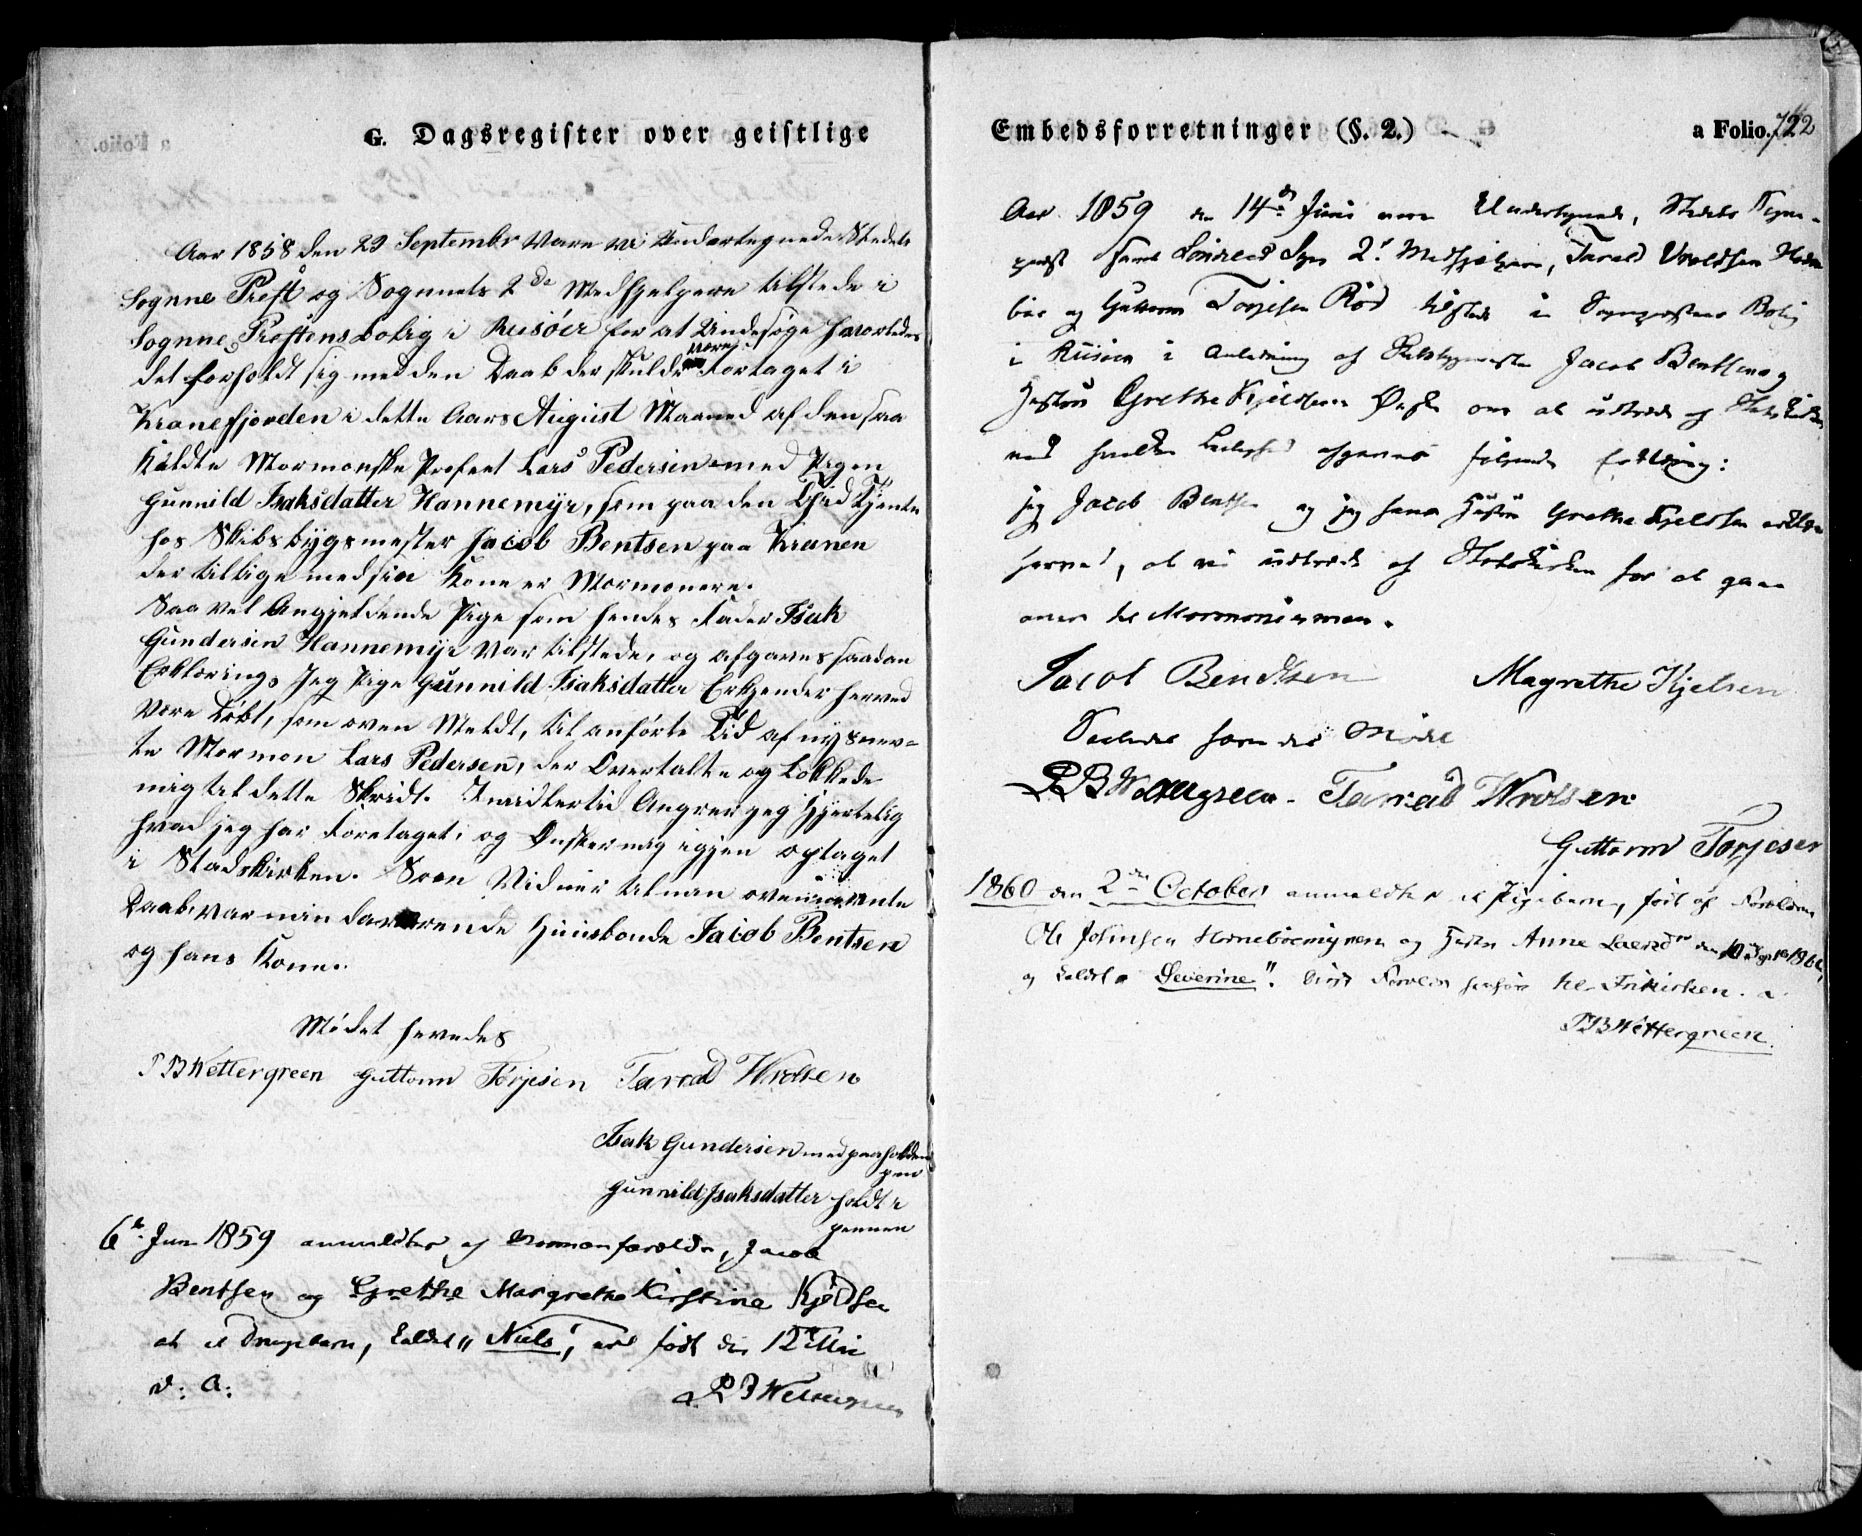 G. Dagsregister over geistlige
Aar 1858 den 29 Septembr Vare vi Undertegnede Stedets
Sognne Prest og Sognets 2de Medhjelpere tilstede i
Sognne Prestens bolig i Riisöer for at Undesöge hvorledes
det forholdt sig med den Daab der skulde være Fortaget i
Kranefjorden i dette Aars August Maaned af den saa
Kaldte Mormonske Profeet Lars Pedersen med Pigen
Gunnild Isaksdatter Hannemyr, som paa den Tid tjente
hos Skibsbygsmester Jacob Bentsen paa Kranen
der tillige med sin Kone er Mormonere.
Saa vel Angjeldende Pige som hendes Fader Isak
Gundersen Hannemyr var tilstede, og afgaves saadan
Erklæring: Jeg Pige Gunnild Isaksdatter Erkjender herved
Være Døbt, som oven Meldt, til anførte Tid af nysnev=
te Mormon Lars Pedersen, der Overtalte og Lokkede
mig til dette Skridt. Imidlertid Angrer jeg Hjertelig
hvad jeg har Foretaget, og Ønsker mig igjen optaget
i Stadskirken. Som Vidner til min ovennevnte
Daab, var min daværende Huusbonde Jacob Bentsen
og hans Kone.
Mødet hevedes
P B Wettergreen Guttorm Torjesen Tarald Wrolsen
Isak Gundersen med paaholden
pen
Gunnild Isaksdatter holdt i
pennen
6te Juni 1859 anmeldtes af Mormonforældre, Jacob
Bentsen og Grethe Margrethe Kirstine Kjeldsen
at et Drengebarn, kaldet "Niels", er født den 12te Mai
d: A:
P B Wettergreen
Embedsforretninger (§. 2.)
a Folio. 722
Aar 1859 den 14de Juni vare Undertegnede, Stedets Sogne-
prest samt Söndeled Sogns 2de Medhjelpere, Tarald Wroldsen
og Guttorm Torjesen Röd tilstede i Sogneprestens Bolig
i Riisöer i Anledning af Skibsbygmester Jacob Bentsen og
Hustru Grethe Kjeldsens Ønske om at udtræde af Statskirken
ved hvilken Leilighed afgaves følgende Erklæring:
jeg Jacob Bentsen og jeg hans Hustru Grethe Kjeldsen erklære
herved, at vi udtræde af Statskirken for at gaae
over til Mormonismen.
Jacob Bendtsen Magrethe Kjelsen
Saaledes for
P B Wettergreen. Tarald Wrolsen
Guttorm Torjesen
1860 den 2den October anmeldtes et Pigebarn, født af Forældrene
Ole Johnsen og Hustru Anne den 10de 1860,
og kaldt "Severine". Disse Forældre henhøre til Frikirken.
P B Wettergreen.